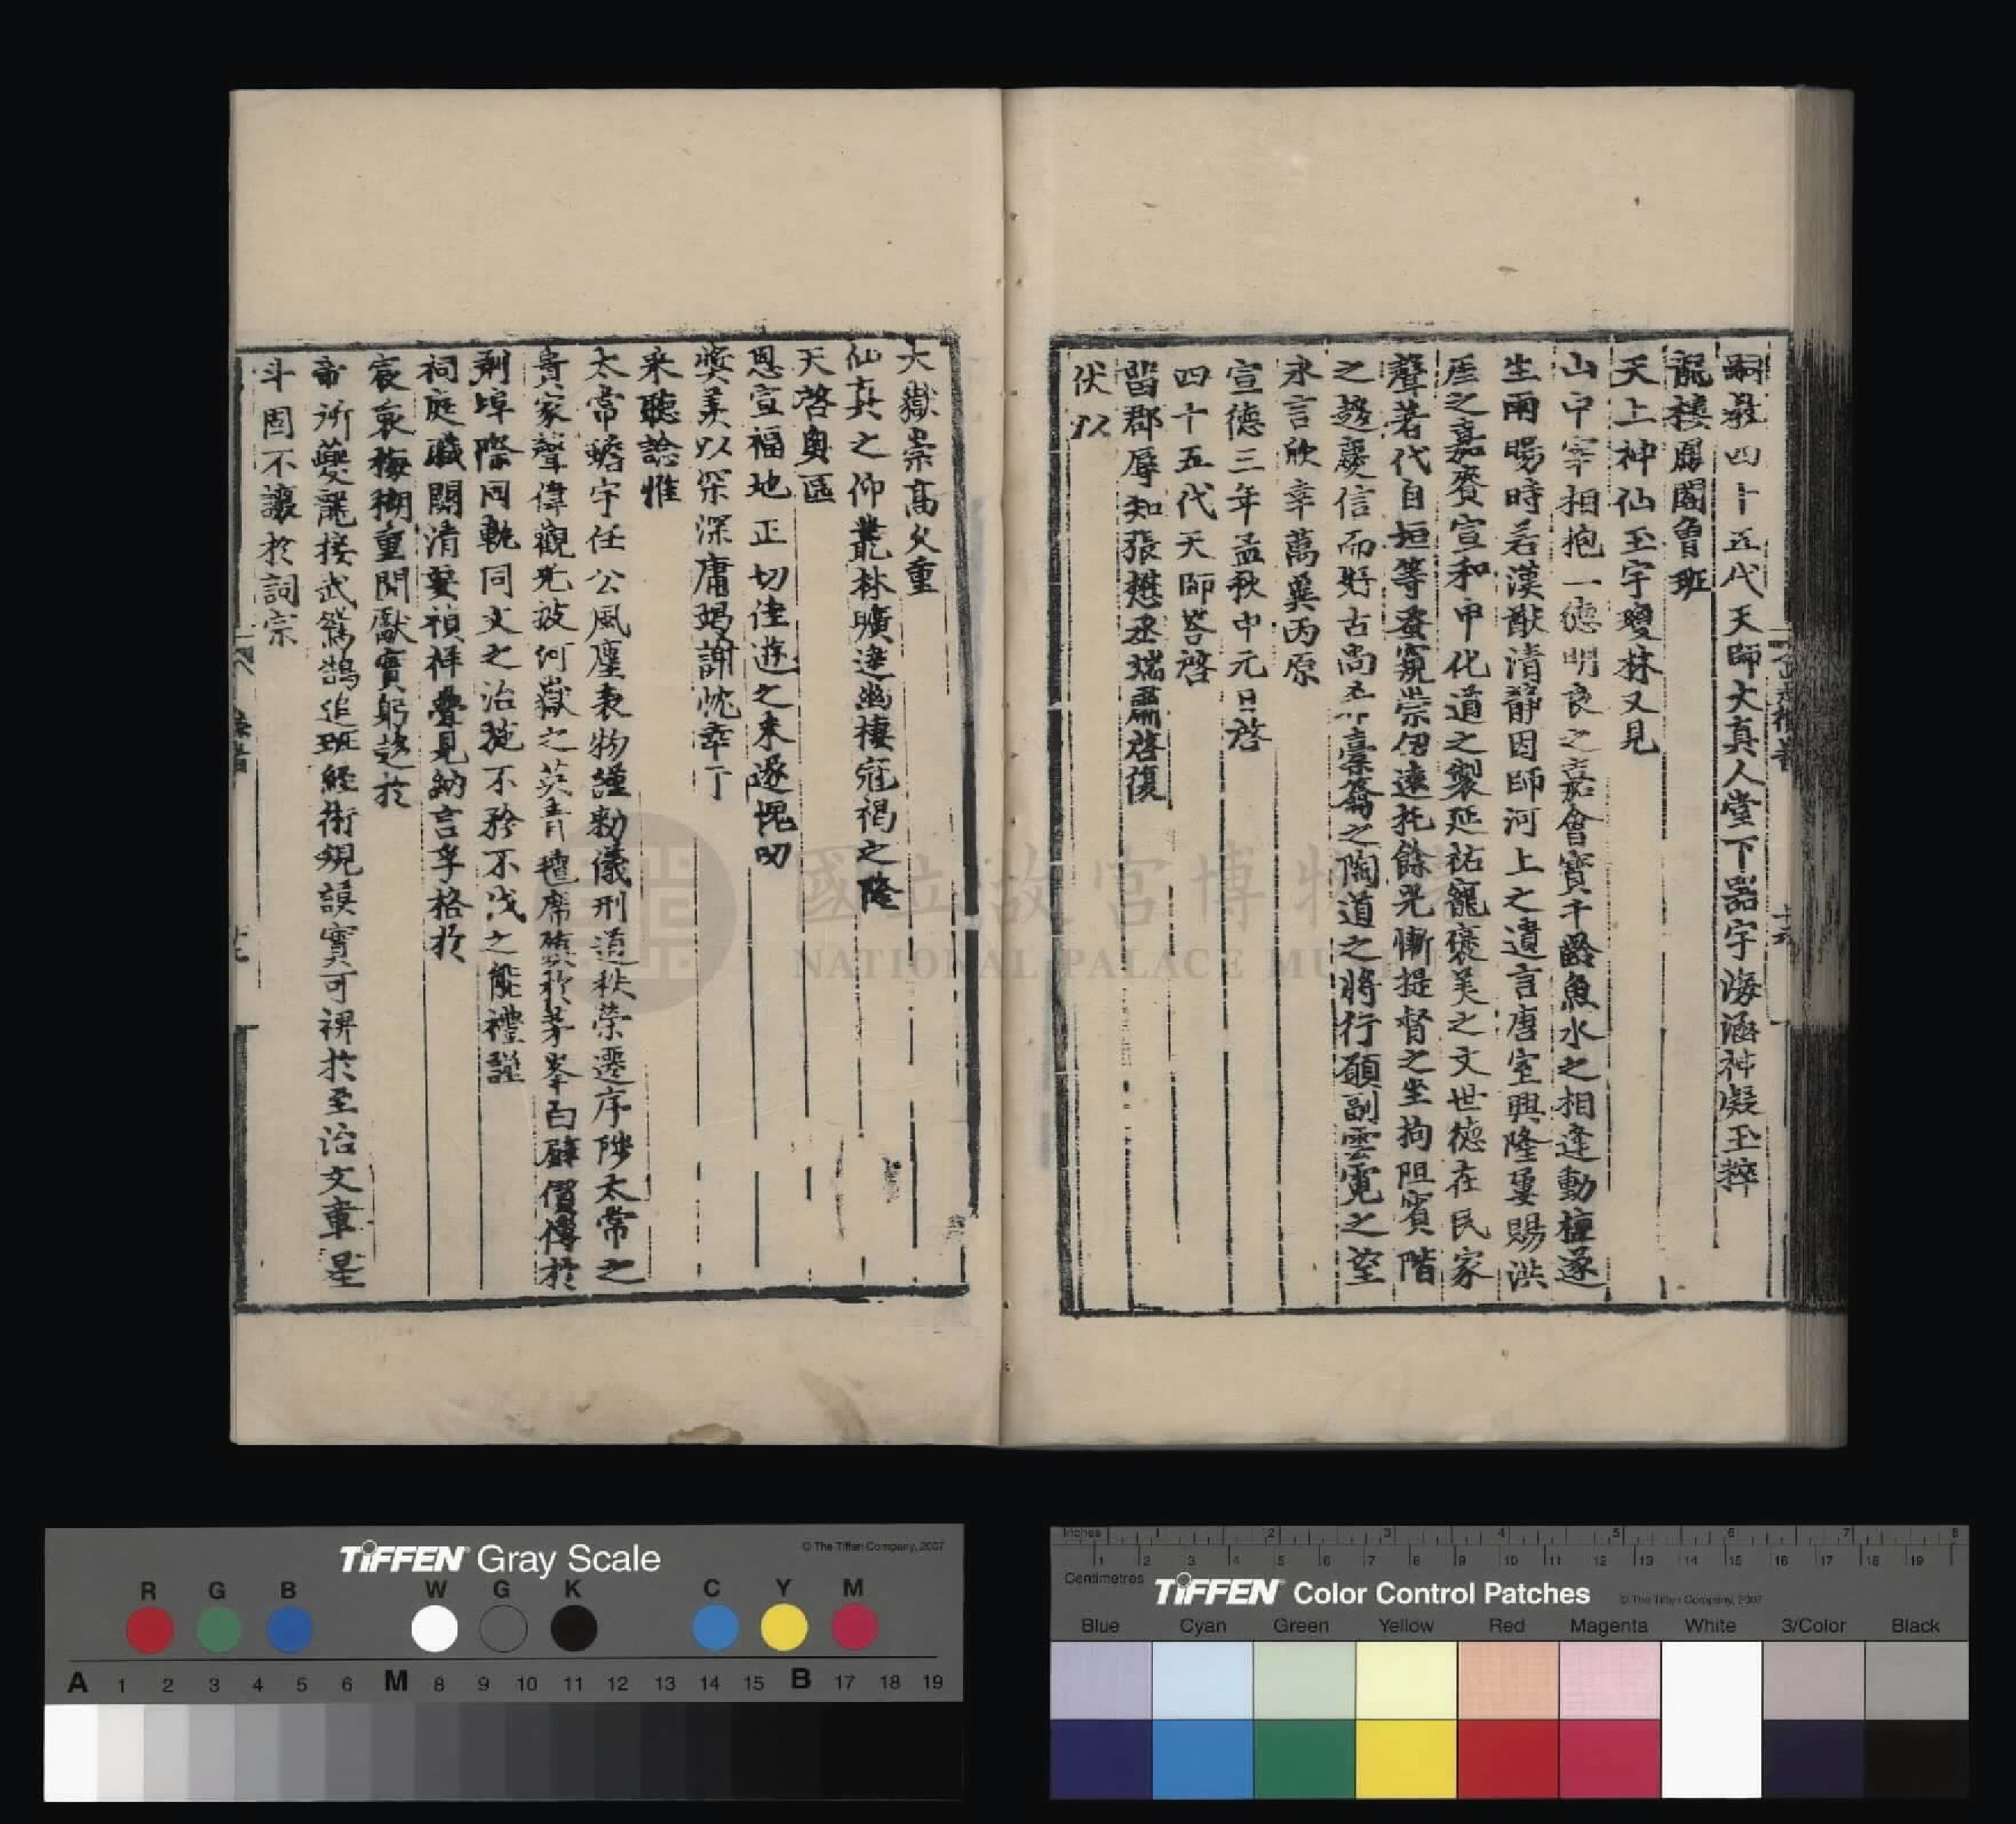 嗣教四十五代天師大真人堂下器宇海涵神凝玉粹
龍樓鳳閣曾班
天上神仙玉宇瓊林又見
山中宰相抱一德明良之嘉會實千齡魚水之相逢動植遂
生雨暘時若漢猷清靜因師河上之遺言唐室興隆屢賜洪
厓之嘉賚宣和申化道之製延祐寵褒美之文世德在民家
聲著代自垣等蚤窺崇仞遠托餘光慚提督之坐拘阻賓階
之趍慶信而好古尚祈橐籥之陶道之將行願副雲霓之望
永言欣幸萬冀丙原
宣德三年孟秋中元日啓
四十五代天師荅啓
留郡辱知張懋丞端肅啓復
伏以
大嶽崇高久重
仙真之仰叢林曠逹幽棲冠褐之隆
天啓奥區
恩宣福地正切佳遊之来遂愧叨
奬美以深深庸朅謝忱幸丁
来聽諗惟
太常蟾宇任公風塵表物謹勑儀刑道秩榮遷序陟太常之
貴家聲偉觀光被何嶽之英青氊席煥於茅峯白璧價傳於
荆埠際同軌同文之治施不矜不伐之能禮謹
祠庭職闗清要禎祥疊見納言孚格於
宸衷梅楜重開獻實躬趍於
帝所夔龍接武鴛鵠追班經術規謨實可裨於至治文章星
斗固不讓於詞宗
國立故宮博物院
NATIONAL PALACE MUSEUM
TIFFEN Gray Scale
© The Tiffen Company, 2007
R G B W G K C Y M
A 1 2 3 4 5 6 M 8 9 10 11 12 13 14 15 B 17 18 19
Inches 1 2 3 4 5 6 7 8
1 2 3 4 5 6 7 8 9 10 11 12 13 14 15 16 17 18 19
Centimetres
TIFFEN Color Control Patches
© The Tiffen Company, 2007
Blue Cyan Green Yellow Red Magenta White 3/Color Black